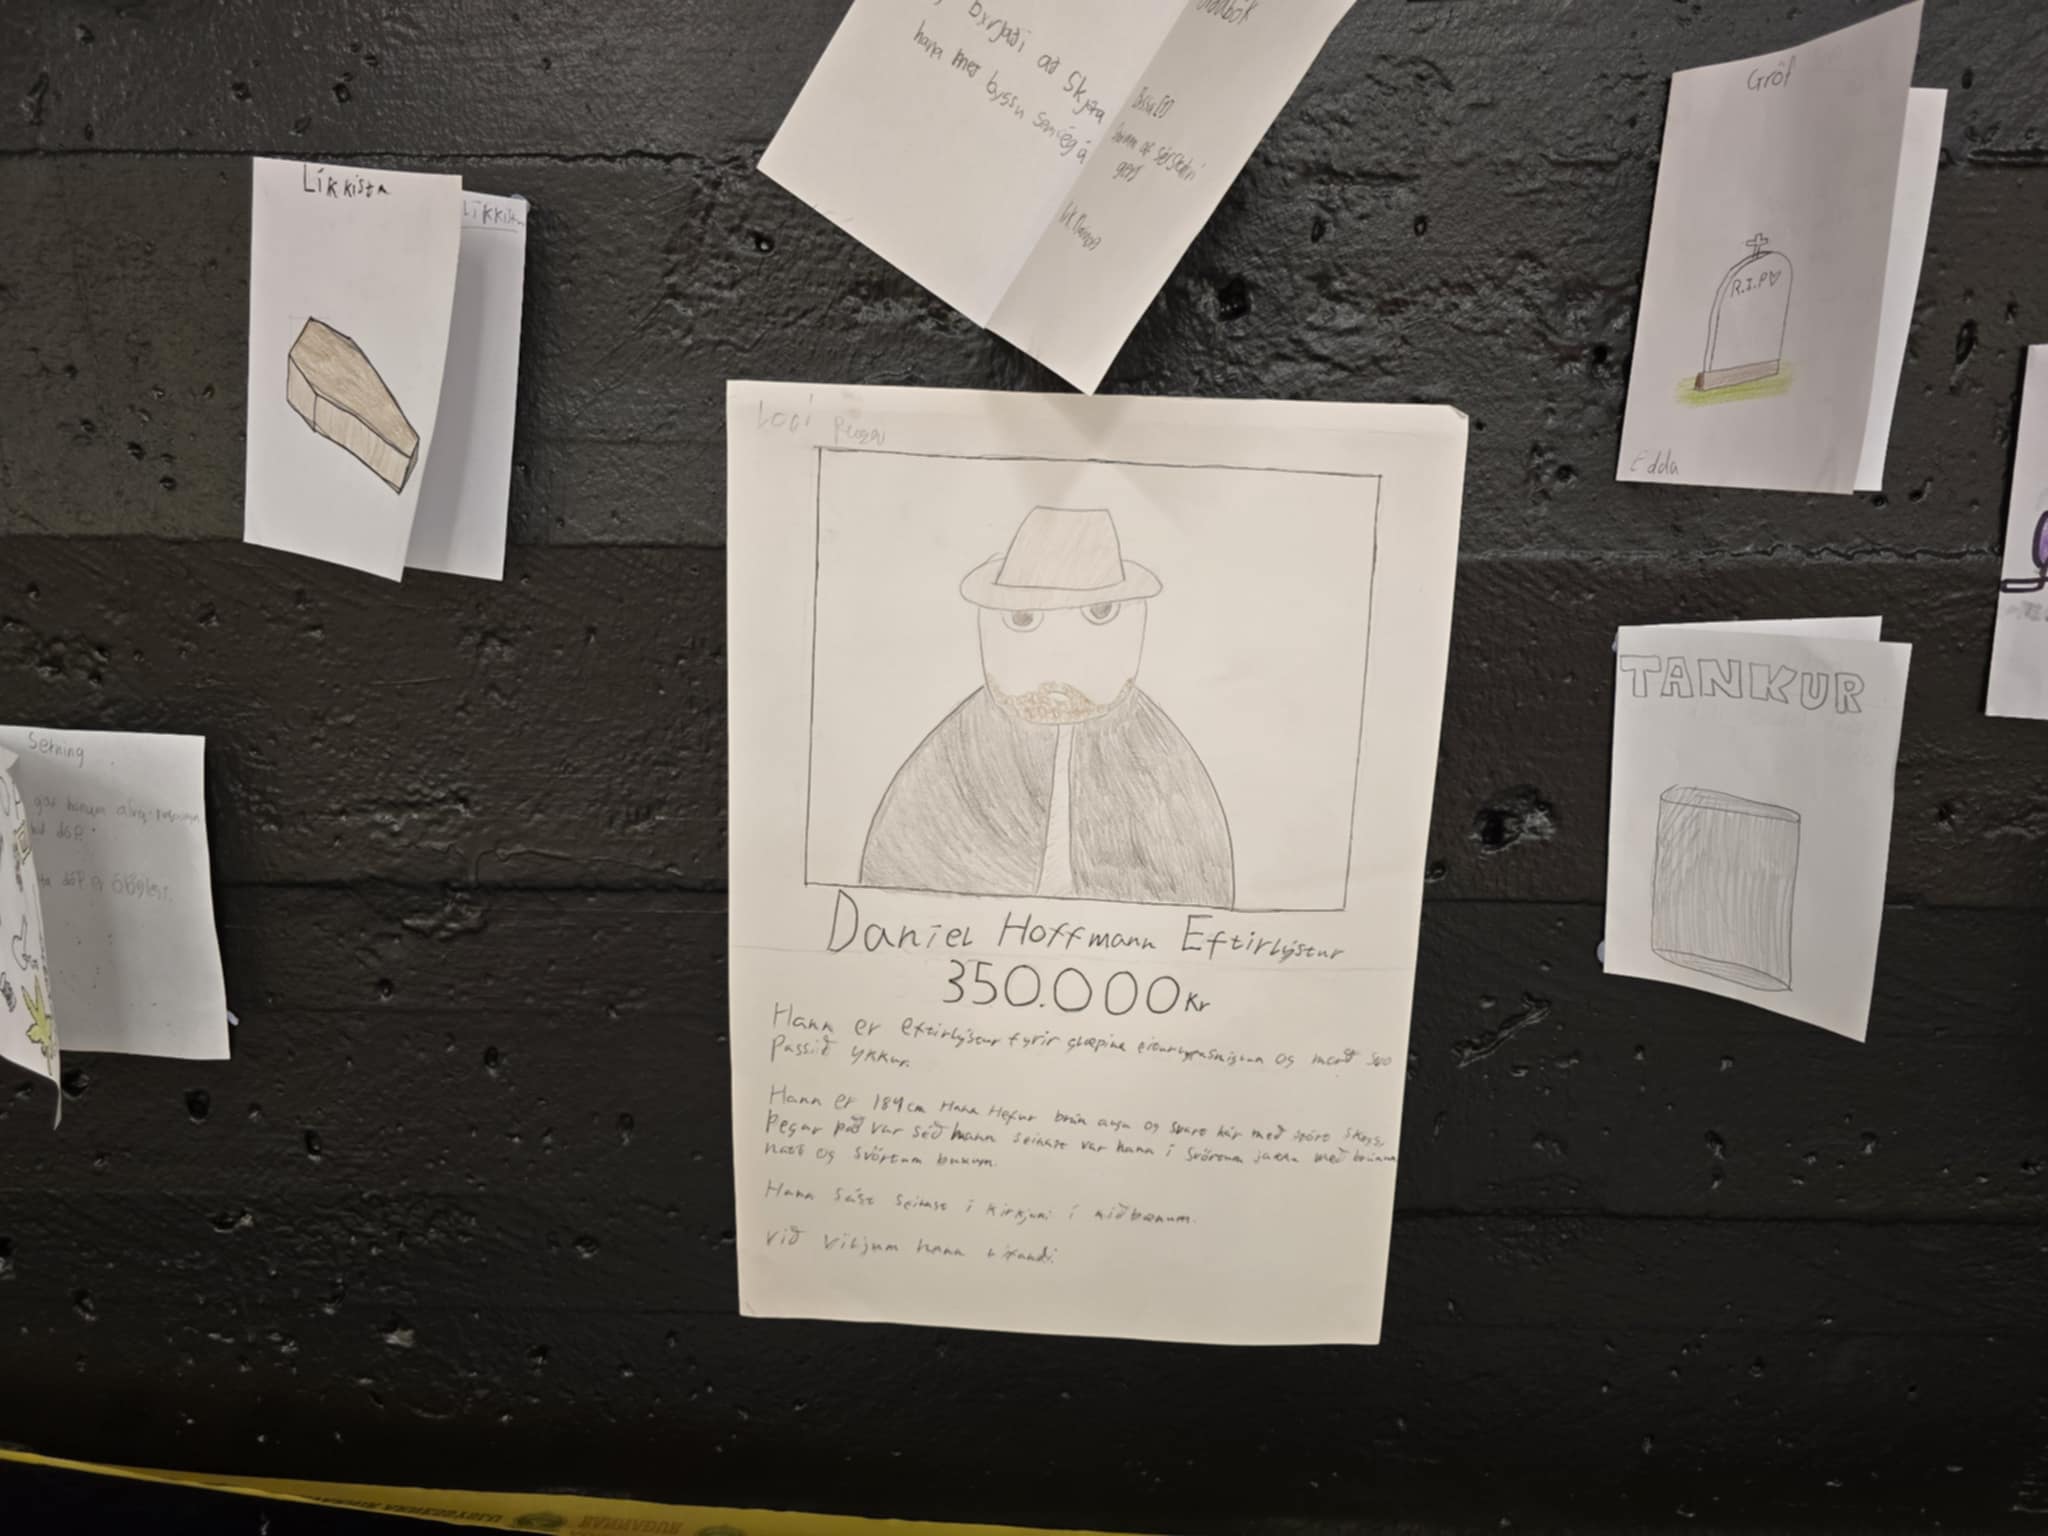 byrjaði að skjóta
hana með byssu sem ég á
Líkkista
Líkkista
Gröf
R.I.P
Edda
Logi
Daníel Hoffmann Eftirlýstur
350.000 kr
Hann er eftirlýstur fyrir glæpina eiturlyfjasmiglun og morð svo
Passið ykkur.
Hann er 189 cm Hann Hefur brún augu og svart hár með stórt skegg.
Þegar það var séð hann seinast var hann í svörtum jakka með brúnum
hatt og svörtum buxum.
Hann sást seinast í kirkjuni í miðbænum.
við viljum hann lifandi.
TANKUR
Setning
gaf honum
dóp er ólöglegt.